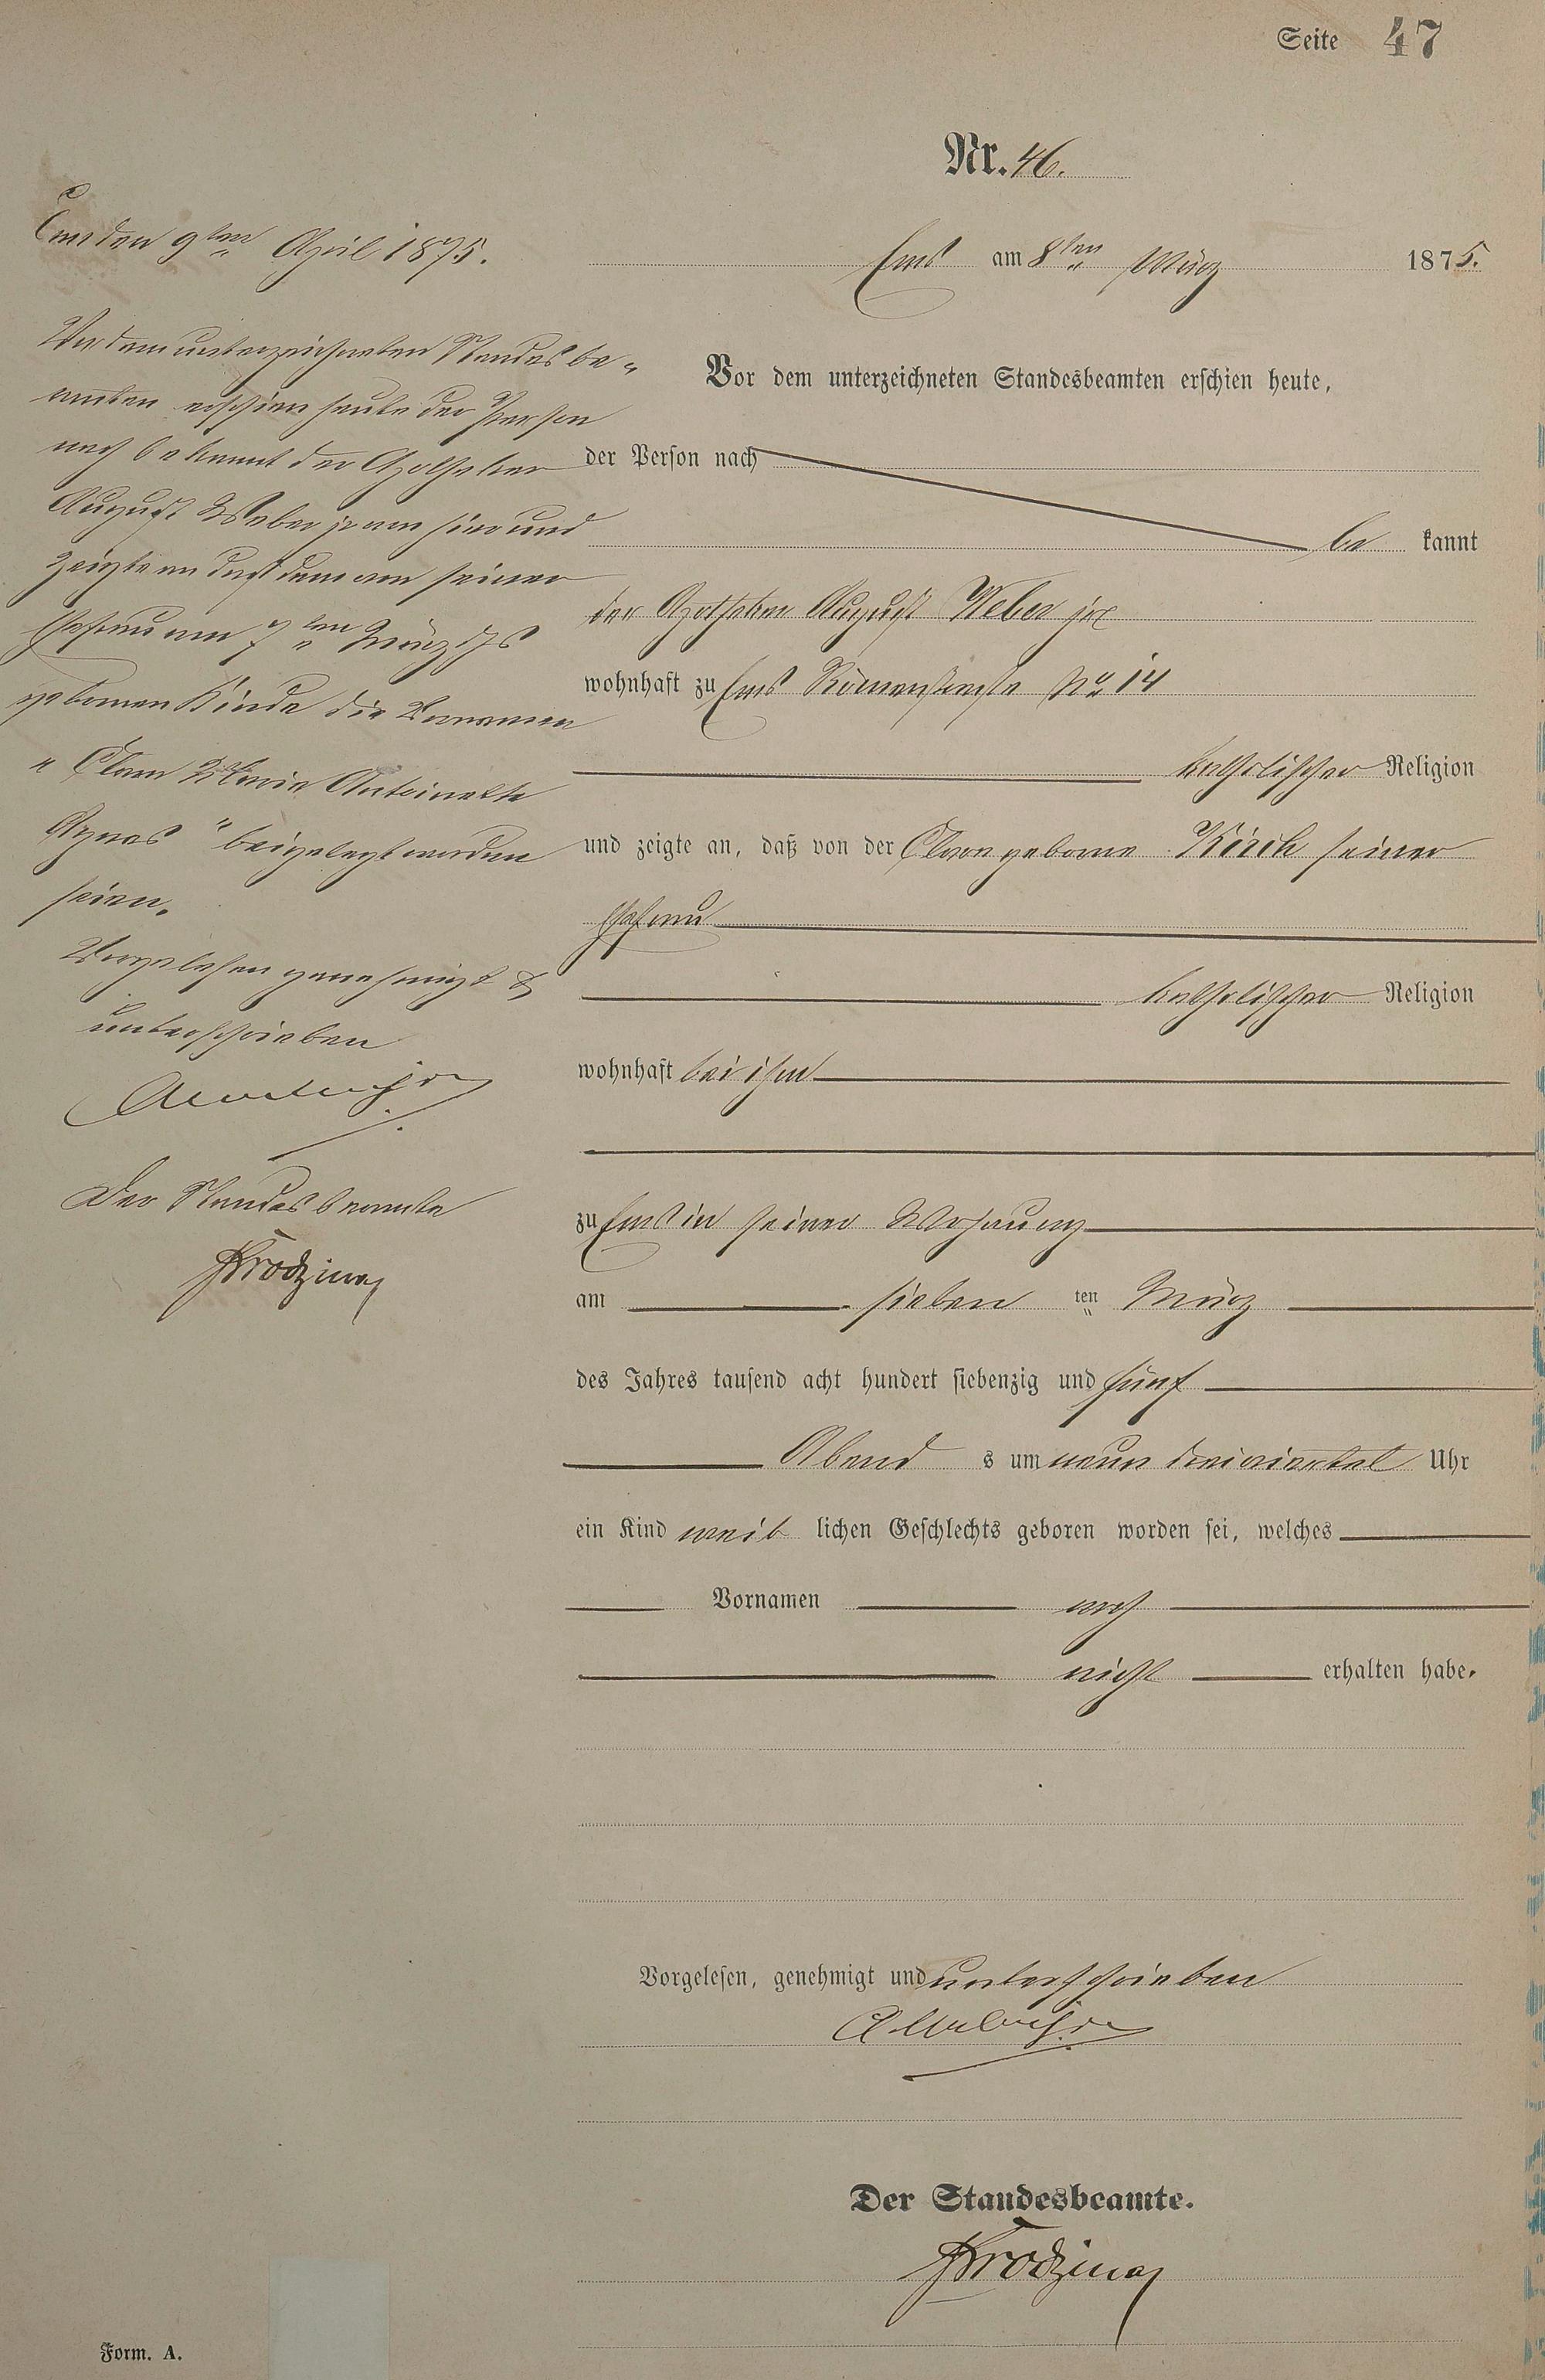 Seite 47
Nr. 46.
Ems am 8ten März 1875.
Vor dem unterzeichneten Standesbeamten erschien heute,
der Person nach
be kannt
der Apotheker August Weber jr
wohnhaft zu Ems Römerstraße No 14
katholischer Religion
und zeigte an, daß von der Clara geborne Kirch seiner
Ehefrau
katholischer Religion
wohnhaft bei ihm
zu Ems in seiner Wohnung
am sieben ten März
des Jahres tausend acht hundert siebenzig und fünf
Abend s um neun dreiviertel Uhr
ein Kind weib lichen Geschlechts geboren worden sei, welches
Vornamen noch
nicht erhalten habe.
Vorgelesen, genehmigt und unterschrieben
A Weber jr
Der Standesbeamte.
Ems den 9ten April 1875.
Vor dem unterzeichneten Standesbe-
amten erschien heute der Person
nach bekannt der Apotheker
August Weber jr von hier und
zeigte an daß dem von seiner
Ehefrau am 7ten März djs
gebornen Kinde die Vornamen
"Clara Maria Antoinette
Agnes" beigelegt worden
seien.
Vorgelesen genehmigt &
unterschrieben
A Weber jr
Der Standesbeamte
Form. A.